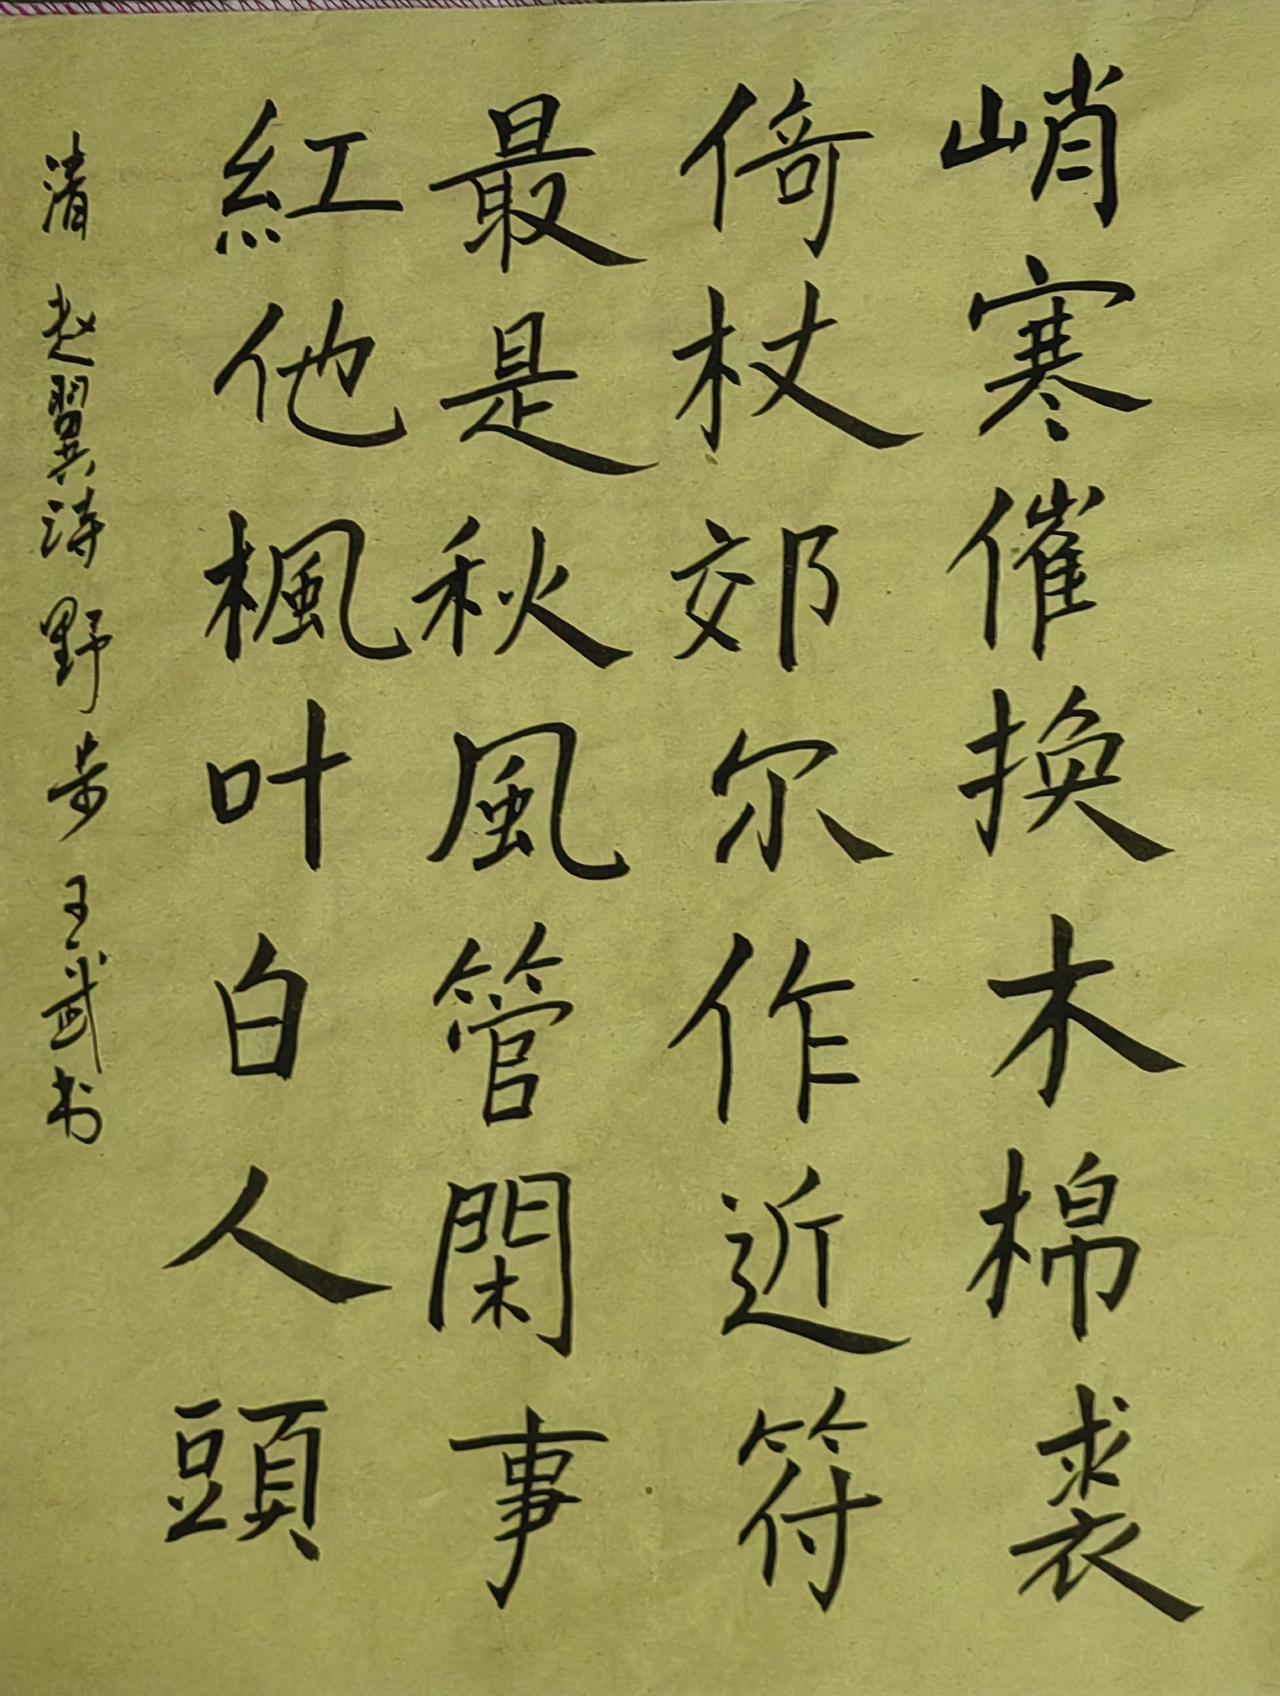 峭寒催換木棉裘
倚杖郊尔作近符
最是秋風管閑事
紅他楓叶白人頭
清 赵翼诗 野步 王武书